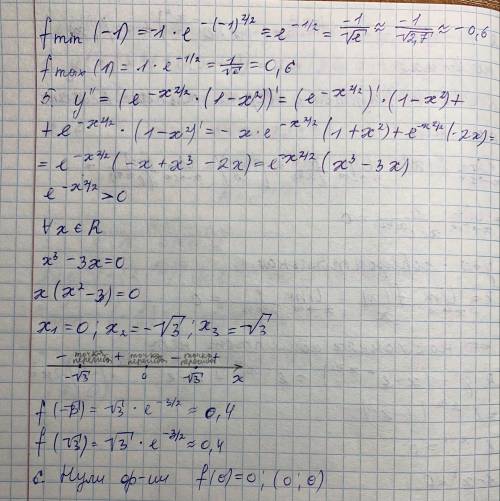 f min (-1) = -1 · e^{-(-1)^{2}/2} = e^{-1/2} = \frac{-1}{\sqrt{e}} ≈ \frac{-1}{\sqrt{2,7}} ≈ -0,6
f max (1) = 1 · e^{-1/2} = \frac{1}{\sqrt{e}} = 0,6
5. y'' = (e^{-x^{2}/2} · (1-x^{2}))' = (e^{-x^{2}/2})' · (1-x^{2}) +
+ e^{-x^{2}/2} · (1-x^{2})' = -x · e^{-x^{2}/2} (1+x^{2}) + e^{-x^{2}/2} (-2x) =
= e^{-x^{2}/2} (-x + x^{3} - 2x) = e^{-x^{2}/2} (x^{3} - 3x)
e^{-x^{2}/2} > 0
∀x ∈ R
x^{3} - 3x = 0
x (x^{2} - 3) = 0
x_{1} = 0 ; x_{2} = -√3 ; x_{3} = -√3
- точка перегиба + точка перегиба - точка перегиба +
-√3 0 √3 x
f (-√3) = √3 · e^{-3/2} ≈ 0,4
f (√3) = √3 · e^{-3/2} ≈ 0,4
6. Нули ф-ии f(0) = 0 ; (0; 0)